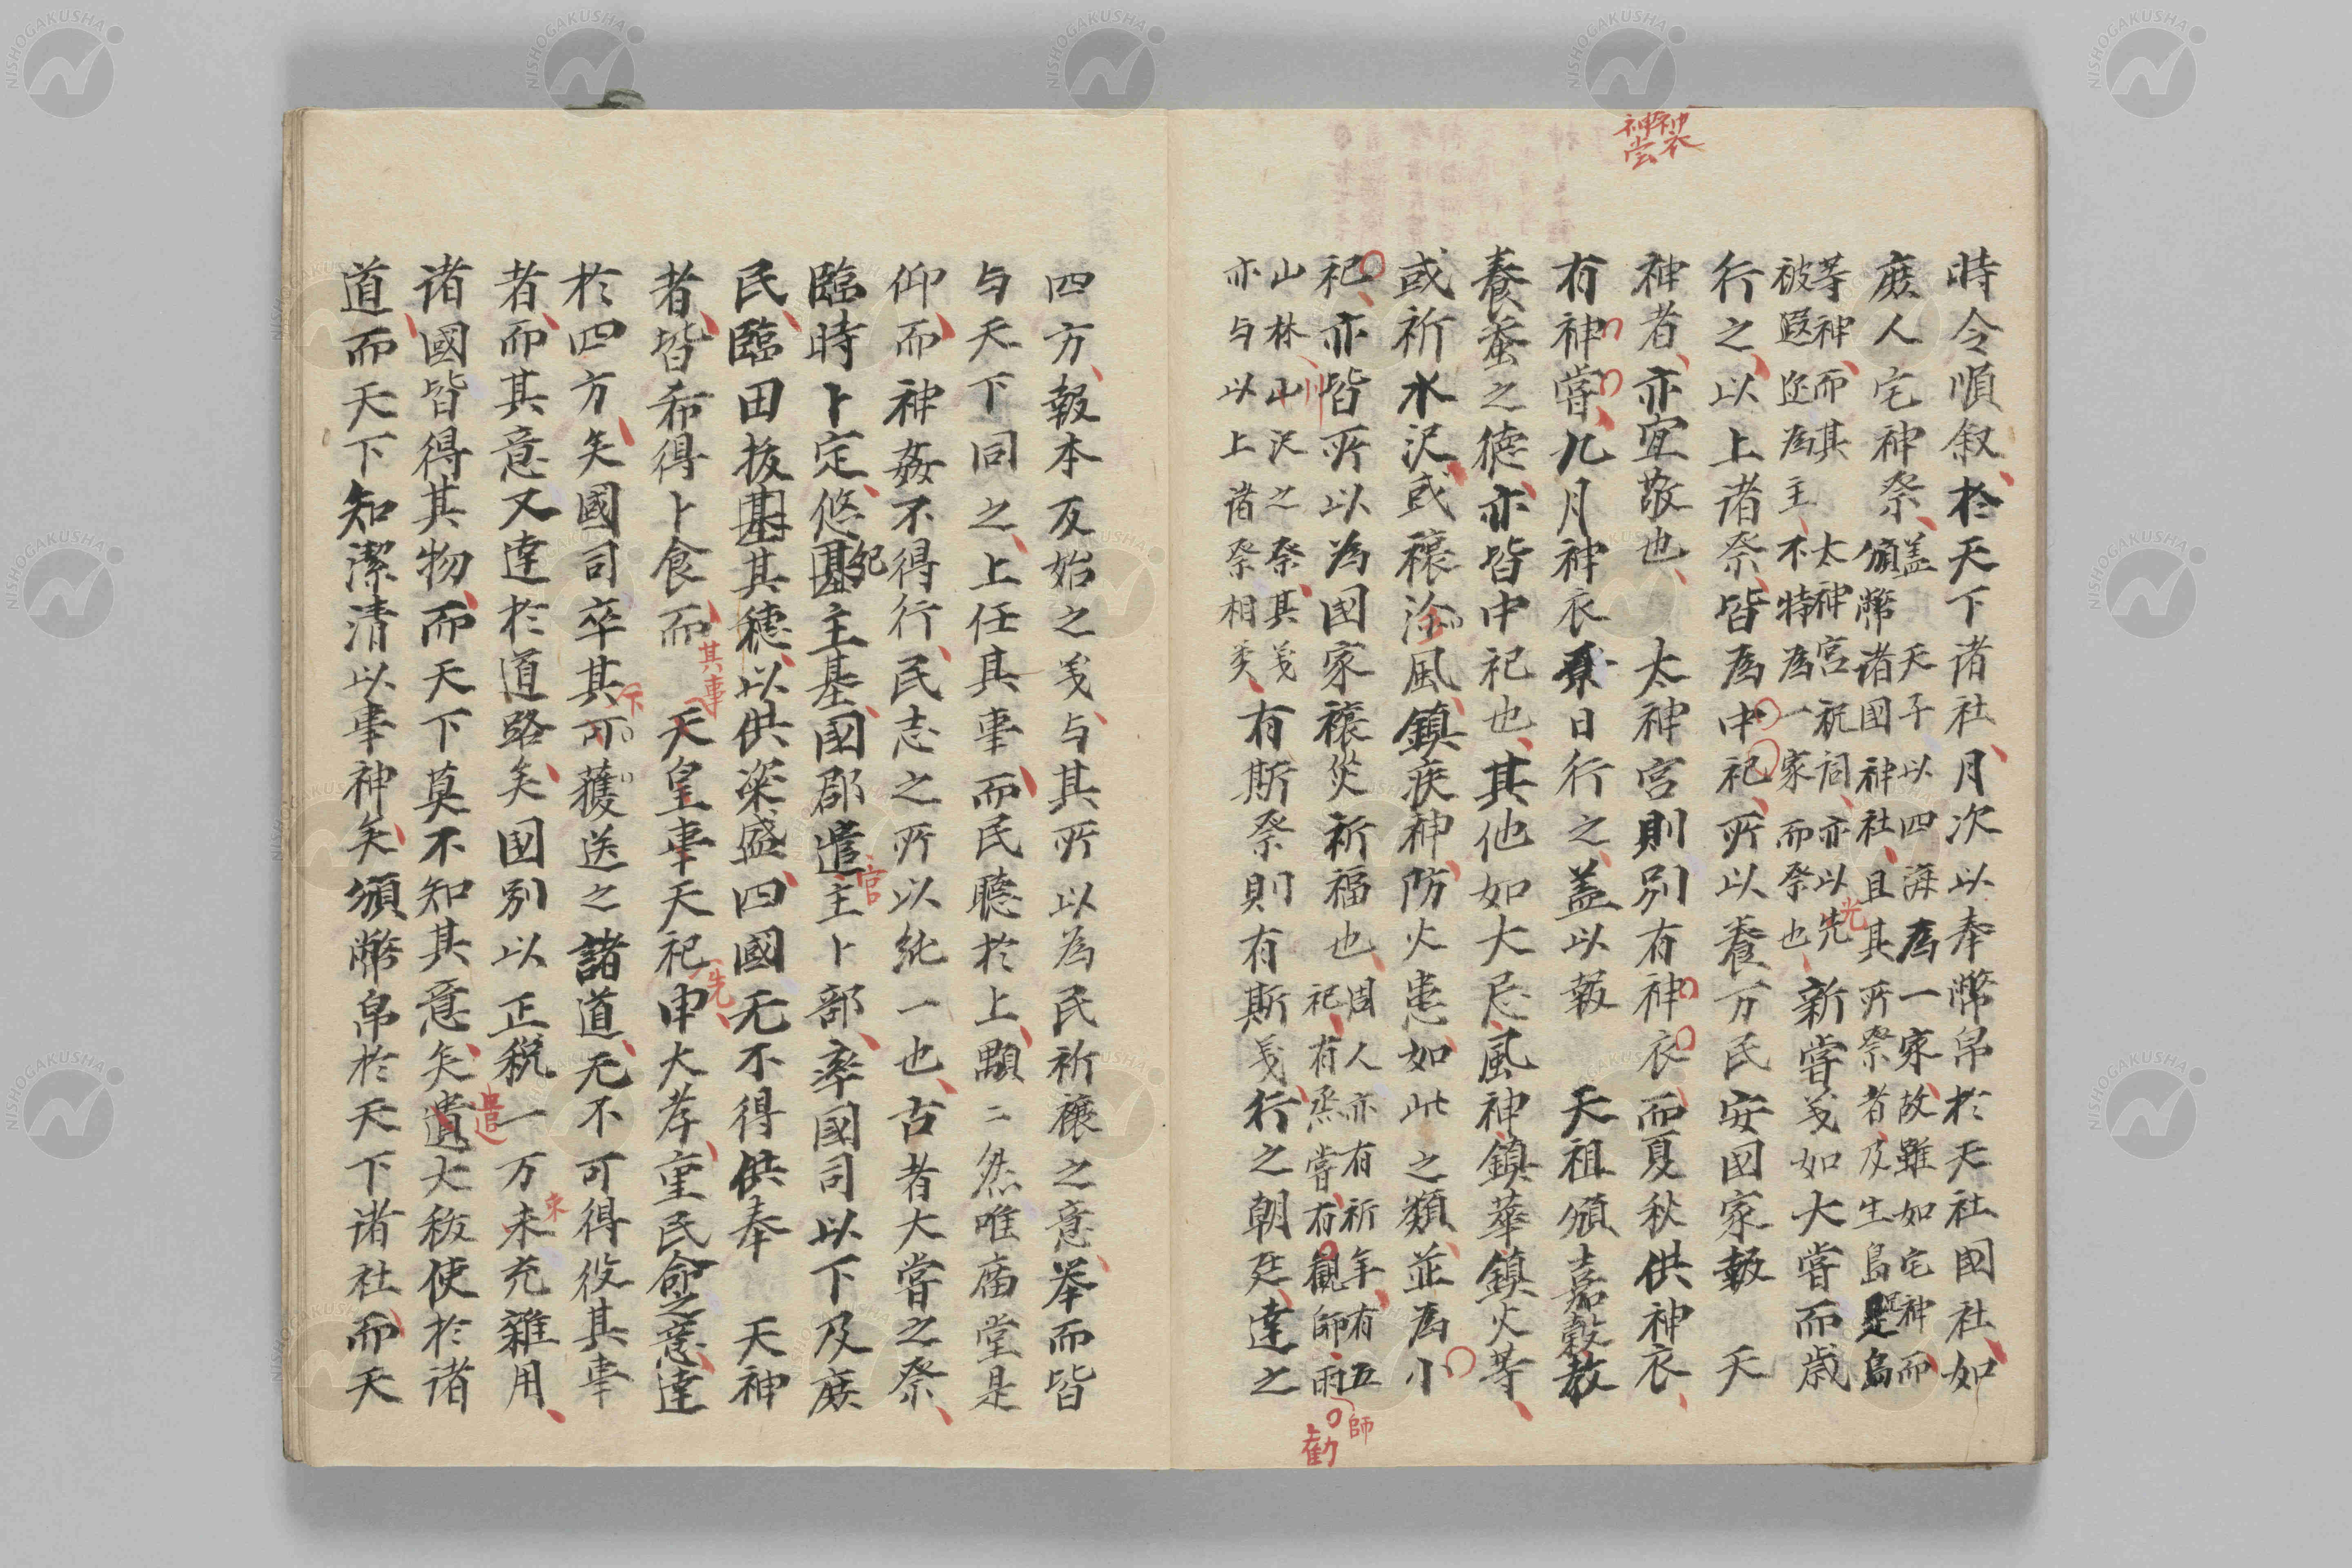 神衣
神嘗
時令順叙於天下諸社月次以奉幣帛於天社國社如
庶人宅神祭
盖天子以四海為一家故雖如宅神而
頒幣諸國神社且其所祭者及生島足島
等神而其太神宮祝詞亦以先
被遐迩為主不特為一家而祭也
光
新嘗义如大嘗而歳
行之以上诸祭皆為中祀所以養万民安国家報　天
神者亦宜敬也　太神宮則別有神衣而夏秋供神衣
有神嘗九月神衣祭日行之盖以報　天祖頒嘉穀教
養蚕之徳亦皆中祀也其他如大忌風神鎮華鎮火等
或祈水沢或禳沴風鎮疾神防火患如此之類並為小
祀亦皆所以為国家禳災祈福也
周人亦有祈年有五
祀有烝嘗有觀師雨
師
勸
山林山沢之祭其义
川
亦与以上诸祭相类
有斯祭則有斯义行之朝廷達之
四方報本反始之义与其所以為民祈禳之意举而皆
与天下同之上任其事而民聴於上顒二然唯庙堂是
仰而神姦不得行民志之所以純一也古者大嘗之祭
臨時卜定悠基主基國郡遣主卜部率國司以下及庶
紀
官
民臨田抜其穂以供粢盛四國无不得供奉　天神
者皆希得卜食而　天皇事天祀申大孝重民命之意達
其事
先
於四方矣國司卒其可獲送之諸道无不可得役其事
者而其意又達於道路矣国別以正税一万未充雜用
束
诸國皆得其物而天下莫不知其意矣遺大秡使於诸
遣
道而天下知潔清以事神矣頒幣帛於天下诸社而天